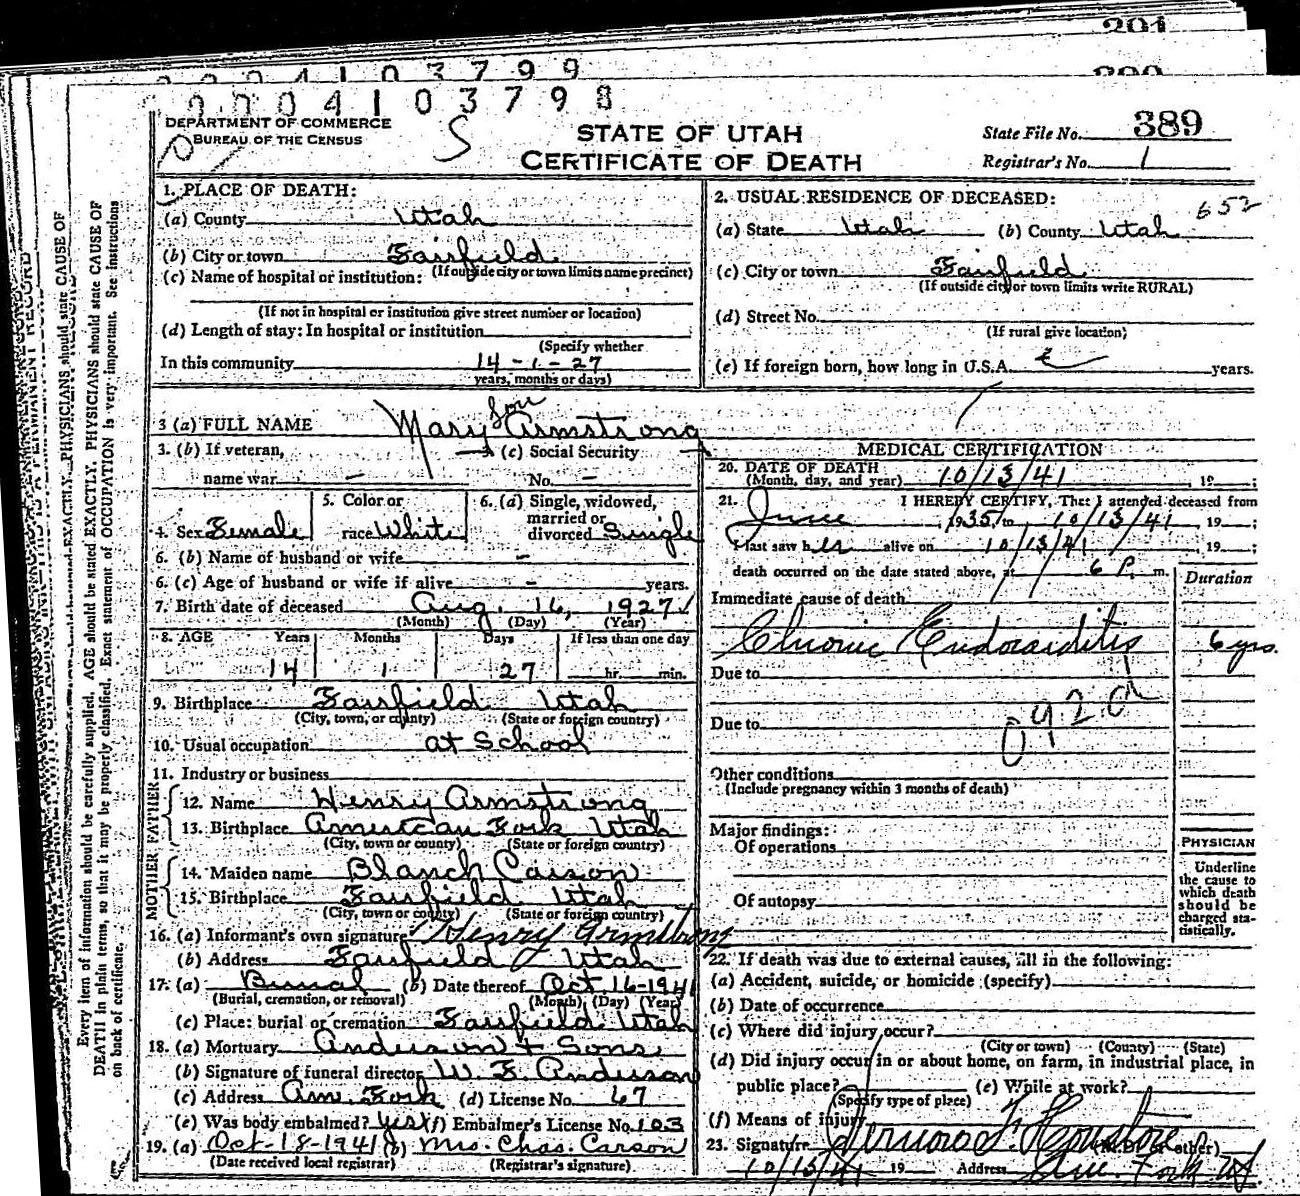 201
0004103799
200
0004103798
DEPARTMENT OF COMMERCE
BUREAU OF THE CENSUS
S
STATE OF UTAH
CERTIFICATE OF DEATH
State File No. 389
Registrar's No. 1
Every item of information should be carefully supplied. AGE should be stated EXACTLY. PHYSICIANS should state CAUSE OF
DEATH in plain terms, so that it may be properly classified. Exact statement of OCCUPATION is very important. See instructions
on back of certificate.
1. PLACE OF DEATH:
(a) County Utah
(b) City or town Fairfield
(If outside city or town limits name precinct)
(c) Name of hospital or institution:
(If not in hospital or institution give street number or location)
(d) Length of stay: In hospital or institution
(Specify whether
In this community 14-1-27
years, months or days)
2. USUAL RESIDENCE OF DECEASED:
652
(a) State Utah (b) County Utah
(c) City or town Fairfield
(If outside city or town limits write RURAL)
(d) Street No.
(If rural give location)
(e) If foreign born, how long in U.S.A. years.
3 (a) FULL NAME Mary Lou Armstrong
3. (b) If veteran,
name war -
(c) Social Security
No. -
4. Sex Female
5. Color or
race White
6. (a) Single, widowed,
married or
divorced Single
6. (b) Name of husband or wife -
6. (c) Age of husband or wife if alive - years.
7. Birth date of deceased Aug. 16, 1927
(Month) (Day) (Year)
8. AGE Years Months Days If less than one day
14 1 27 hr. min.
9. Birthplace Fairfield Utah
(City, town, or county) (State or foreign country)
10. Usual occupation at School
11. Industry or business
FATHER
12. Name Henry Armstrong
13. Birthplace American Fork Utah
(City, town or county) (State or foreign country)
MOTHER
14. Maiden name Blanch Carson
15. Birthplace Fairfield Utah
(City, town or county) (State or foreign country)
16. (a) Informant's own signature Henry Armstrong
(b) Address Fairfield Utah
17. (a) Burial (b) Date thereof Oct 16-1941
(Burial, cremation, or removal) (Month) (Day) (Year)
(c) Place: burial or cremation Fairfield Utah
18. (a) Mortuary Anderson & Sons
(b) Signature of funeral director W. E. Anderson
(c) Address Am. Fork (d) License No. 67
(e) Was body embalmed? Yes (f) Embalmer's License No. 103
19. (a) Oct-18-1941 (b) Mrs. Chas. Carson
(Date received local registrar) (Registrar's signature)
MEDICAL CERTIFICATION
20. DATE OF DEATH
(Month, day, and year) 10/13/41, 19 ;
21. I HEREBY CERTIFY, That I attended deceased from
June, 1935 to 10/13/41, 19 ;
I last saw her alive on 10/13/41, 19 ;
death occurred on the date stated above, at 6 P. m.
Duration
Immediate cause of death
Chronic Endocarditis 6 yrs.
Due to
Due to 092.a
Other conditions
(Include pregnancy within 3 months of death)
Major findings:
Of operations
Of autopsy
PHYSICIAN
Underline
the cause to
which death
should be
charged sta-
tistically.
22. If death was due to external causes, fill in the following:
(a) Accident, suicide, or homicide (specify)
(b) Date of occurrence
(c) Where did injury occur?
(City or town) (County) (State)
(d) Did injury occur in or about home, on farm, in industrial place, in
public place? (e) While at work?
(Specify type of place)
(f) Means of injury
23. Signature (M.D. or other)
10/15/41 19 Address Am. Fork Ut.